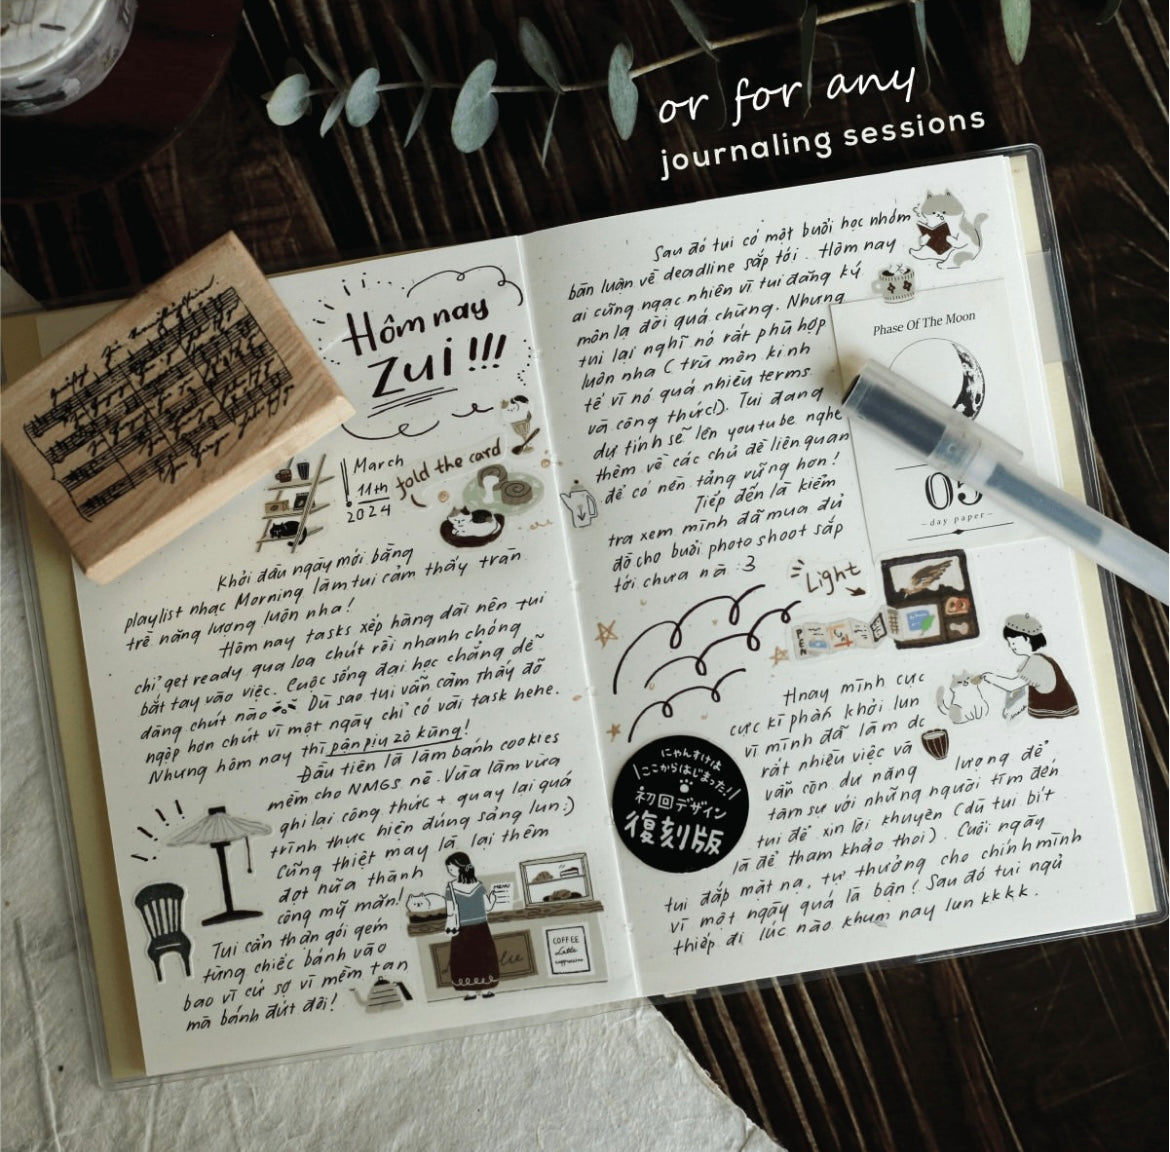 or for any
journaling sessions
Hôm nay
zui !!!
March
11th
2024
fold the card
Khởi đầu ngày mới bằng
playlist nhạc Morning làm tui cảm thấy tràn
trề năng lượng luôn nha!
Hôm nay tasks xếp hàng dài nên tui
chỉ get ready qua loa chút rồi nhanh chóng
bắt tay vào việc. Cuộc sống đại học chẳng dễ
dàng chút nào Dù sao tui vẫn cảm thấy đỡ
ngộp hơn chút vì một ngày chỉ có vài task hehe.
Nhưng hôm nay thì pàn pịu zô kùng!
Đầu tiên là làm bánh cookies
mềm cho NMGs nè. Vừa làm vừa
ghi lại công thức + quay lại quá
trình thực hiện đúng sảng lun:)
Cũng thiệt may là lại thêm
đợt nữa thành
công mỹ mãn!
Tui cẩn thận gói gém
từng chiếc bánh vào
bao vì cứ sợ vì mềm tan
mà bánh đứt đôi!
MENU
COFFEE
Latte
cappuccino
Sau đó tui có một buổi học nhóm
bàn luận về deadline sắp tới. Hôm nay
ai cũng ngạc nhiên vì tui đăng ký
môn lạ đời quá chừng. Nhưng
tui lại nghĩ nó rất phù hợp
luôn nha (trừ môn kinh
tế vì nó quá nhiều terms
và công thức!). Tui đang
dự tính sẽ lên youtube nghe
thêm về các chủ đề liên quan
để có nền tảng vững hơn!
Tiếp đến là kiểm
tra xem mình đã mua đủ
đồ cho buổi photoshoot sắp
tới chưa nà :3
Phase Of The Moon
05
-day paper-
Light
Hnay mình cực
cực kì phấn khởi lun
vì mình đã làm dc
rất nhiều việc và
vẫn còn dư năng lượng để
tâm sự với những người tìm đến
tui để xin lời khuyên (dù tui biết
là để tham khảo thoi). Cuối ngày
tui đắp mặt nạ, tự thưởng cho chính mình
vì một ngày quá là bận! Sau đó tui ngủ
thiếp đi lúc nào khum nay lun kkkk.
にゃんすけは
ここからはじまった!
初回デザイン
復刻版